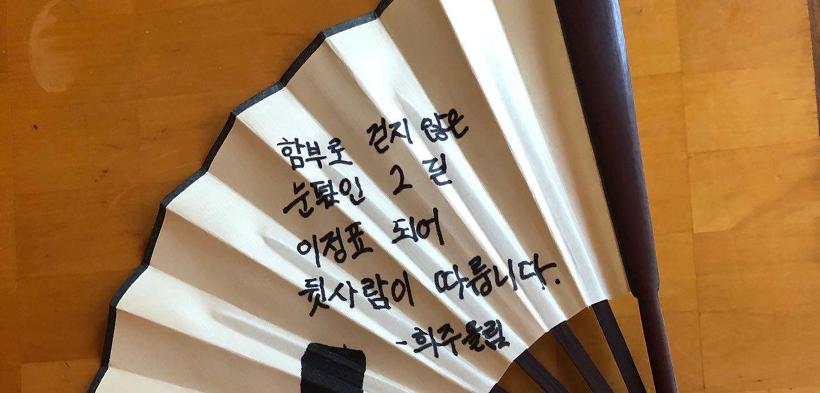 함부로 걷지 않은
눈덮인 그 길
이정표 되어
뒷사람이 따릅니다.
-희주올림